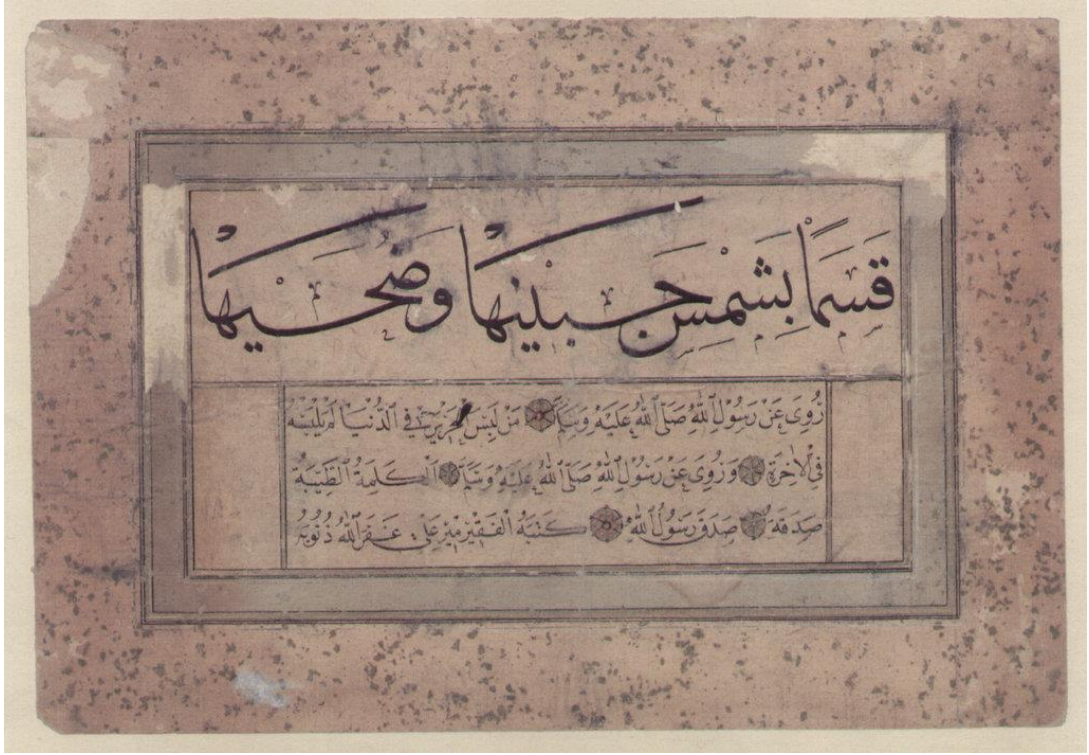 قَسَمًا بِشَمْسِ جَبِينِهَا وَضُحَيْهَا
رُوِىَ عَنْ رَسُولِ اللّٰهِ صَلَّى اللّٰهُ عَلَيْهِ وَسَلَّمَ مَنْ لَبِسَ الْحَرِيرَ فِي الدُّنْيَا لَمْ يَلْبَسْهُ
فِي الْاٰخِرَةِ وَرُوِىَ عَنْ رَسُولِ اللّٰهِ صَلَّى اللّٰهُ عَلَيْهِ وَسَلَّمَ اَلْكَلِمَةُ الطَّيِّبَةُ
صَدَقَةٌ صَدَقَ رَسُولُ اللّٰهِ كَتَبَهُ الْفَقِيرُ مِيرْ عَلِي غَفَرَ اللّٰهُ ذُنُوبَهُ